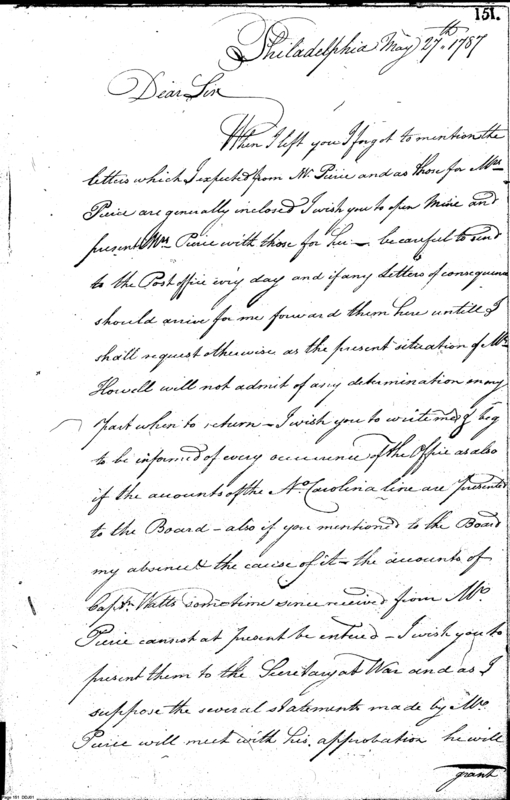 151.
Philadelphia May 27th. 1787
Dear Sir
When I left you I forgot to mention the
letters which I expected from Mr. Pierce and as those for Mrs
Pierce are generally inclosed I wish you to open mine and
present Mrs. Pierce with those for her — be careful to send
to the Post office evry day and if any Letters of consequence
should arrive for me forward them here untill I
shall request otherwise as the present situation of Mr.
Howell will not admit of any determination on my
part when to return — I wish you to write me & beg
to be informed of every occurrence of the Office as also
if the accounts of the No. Carolina line are presented
to the Board — also if you mentioned to the Board
my absence & the cause of it — the accounts of
Captn. Watts some time since received from Mr.
Pierce cannot at present be entered — I wish you to
present them to the Secretary at War and as I
suppose the several statements made by Mr.
Pierce will meet with his approbation he will
grant
Page 151 DDJ01